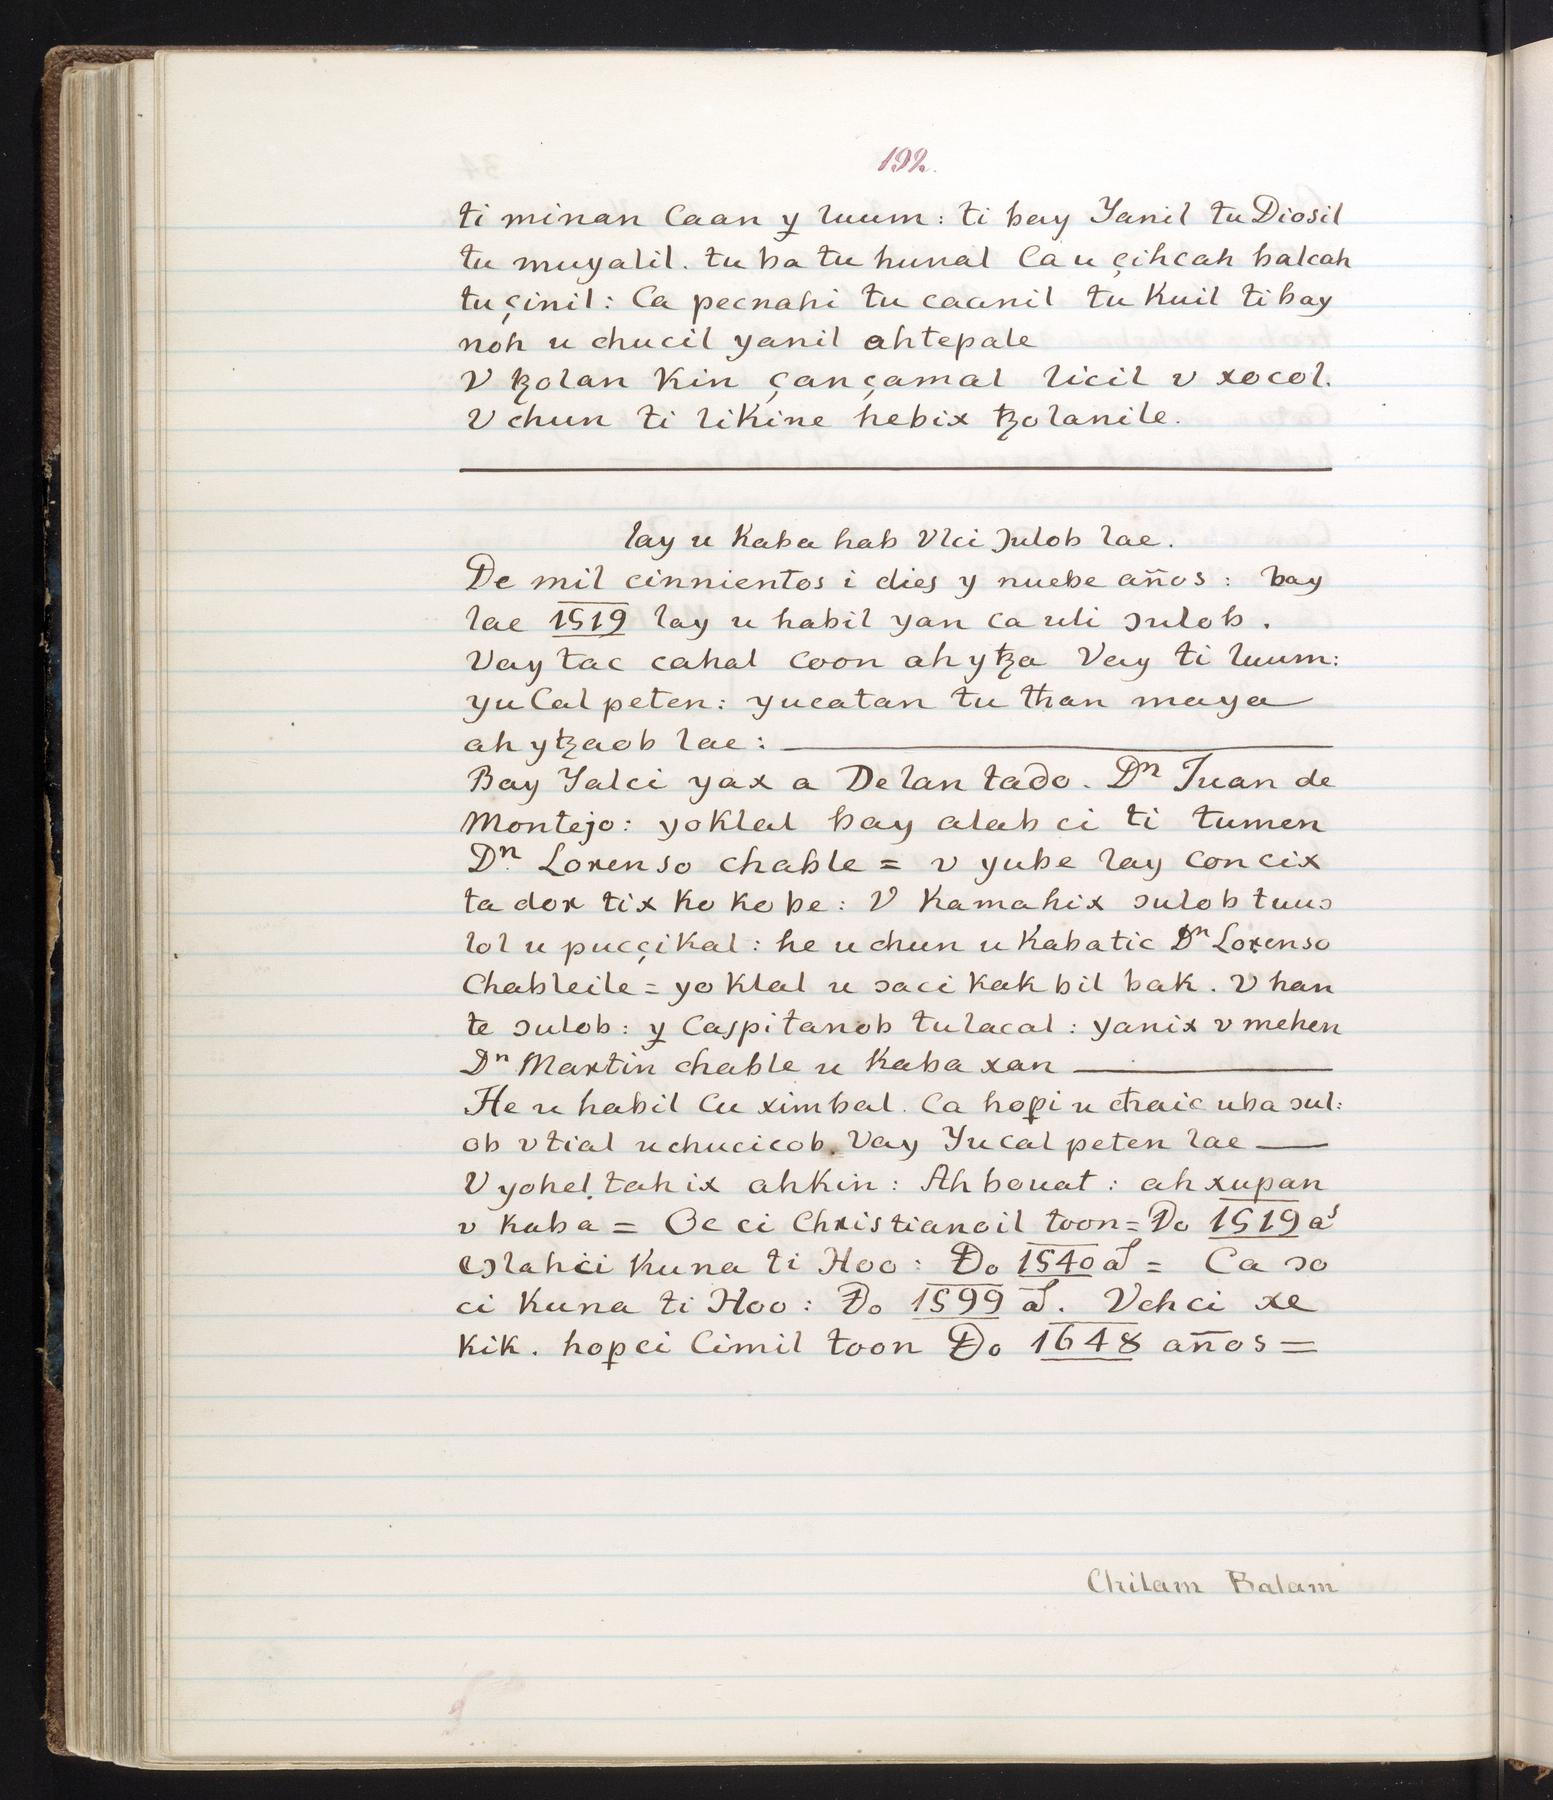 192.
ti minan Caan y luum: ti bay Yanil tu Diosil
tu muyalil. tu ba tu hunal Ca u çihcah balcah
tu çinil: Ca pecnahi tu caanil tu Kuil ti bay
noh u chucil yanil ahtepale
V ꜩolan Kin çançamal licil v xocol.
V chun ti likine hebix ꜩolanile.
lay u Kaba hab Vlci ɔulob lae.
De mil cinnientos i dies y nuebe años: bay
lae 1519 lay u habil yan ca uli ɔulob.
Vay tac cahal coon ah yꜩa Vay ti luum:
yu Cal peten: yucatan tu than maya
ah yꜩaob lae:
Bay Yalci yax a Delan tado. Dⁿ Juan de
Montejo: yoklal bay alab ci ti tumen
Dⁿ. Lorenso chable = v yube lay con cix
ta dor tix ko ko be: V Kamahix ɔulob tuuɔ
lol u pucçikal: he u chun u Kabatic Dⁿ Lorenso
Chableile = yo klal u ɔaci kak bil bak. V han
te ɔulob: y Caspitanob tulacal: yanix v mehen
Dⁿ Martin chable u Kaba xan
He u habil Cu ximbal. Ca hopi u chaic uba ɔul:
ob v tial u chucicob. Vay Yucal peten lae
V yohel. tah ix ahKin: Ah bouat: ah xupan
v kaba = Oc ci Christianoil toon = Do 1519 aˢ
Cɔlahci kuna ti Hoo: Do 1540 aˢ = Ca ɔo
ci Kuna ti Hoo: Do 1599 aˢ. Vchci xe
kik. hopci Cimil toon Do 1648 años =
Chilam Balam